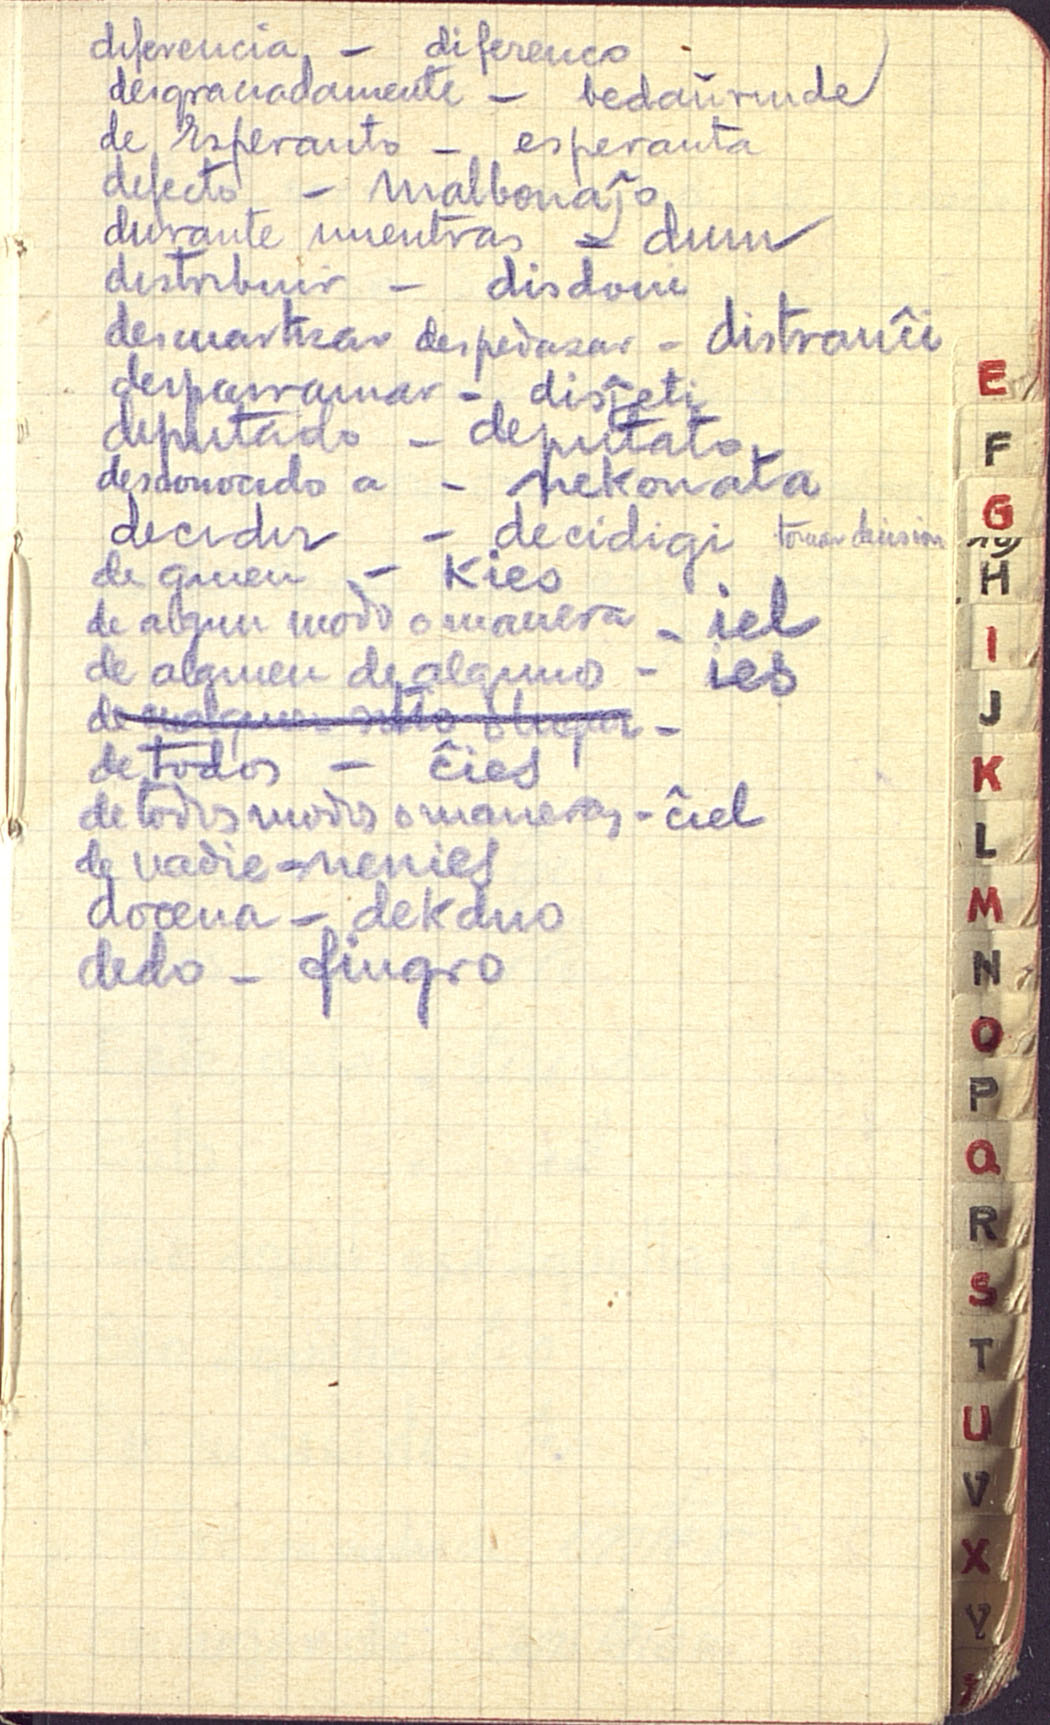 diferencia - diferenco
desgraciadamente - bedaŭrinde
de Esperanto - esperanta
defecto - malbonaĵo
durante mientras - dum
distribuir - disdoni
descuartizar despedazar - distranĉi
desparramar - disĵeti
diputado - deputato
desconocido a - nekonata
decidir - decidigi tomar decision
de quien - kies
de algun modo o manera - iel
de alguien de alguno - ies
de cualquier sitio o lugar -
de todos - ĉies
de todos modos o maneras - ĉiel
de nadie - nenies
docena - dekduo
dedo - fingro
E
F
G
H
I
J
K
L
M
N
O
P
Q
R
S
T
U
V
X
Y